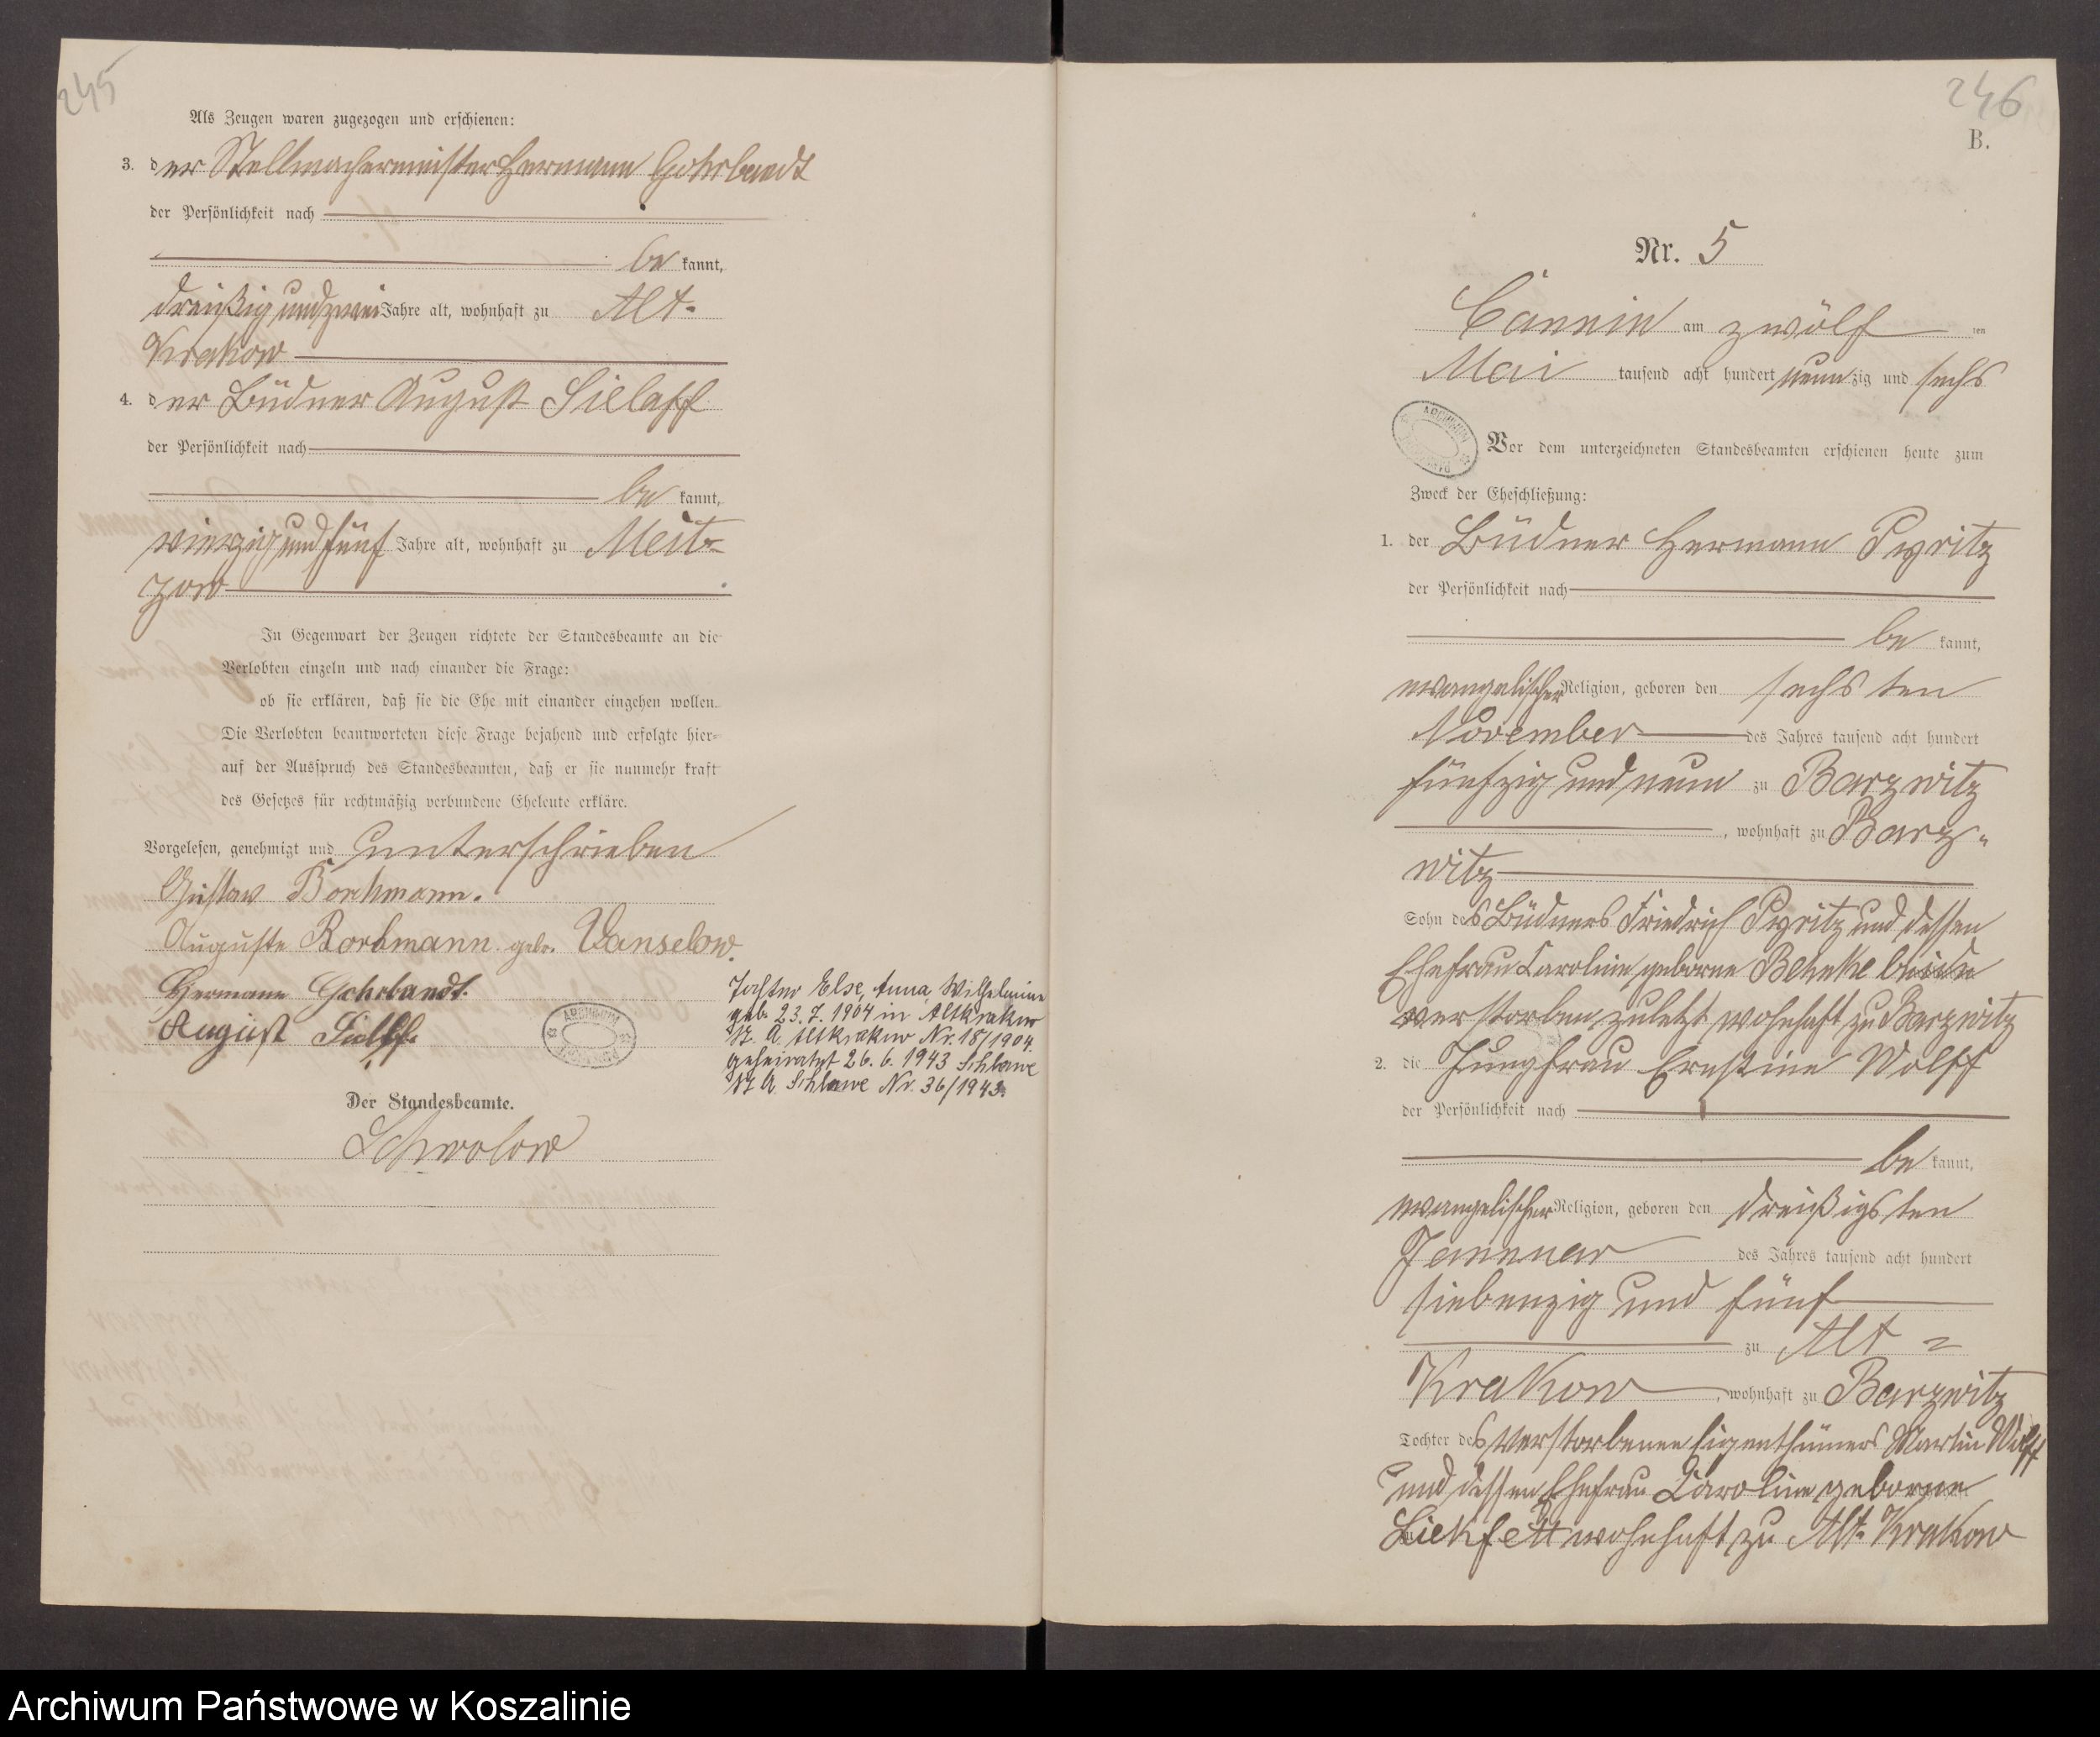 245
Als Zeugen waren zugezogen und erschienen:
3. der Stellmachermeister Hermann Gohrbandt
der Persönlichkeit nach
be kannt,
dreißig und zwei Jahre alt, wohnhaft zu Alt-
Krakow
4. der Büdner August Sielaff
der Persönlichkeit nach
be kannt,
vierzig und fünf Jahre alt, wohnhaft zu Meit-
zow
In Gegenwart der Zeugen richtete der Standesbeamte an die
Verlobten einzeln und nach einander die Frage:
ob sie erklären, daß sie die Ehe mit einander eingehen wollen.
Die Verlobten beantworteten diese Frage bejahend und erfolgte hier-
auf der Ausspruch des Standesbeamten, daß er sie nunmehr kraft
des Gesetzes für rechtmäßig verbundene Eheleute erkläre.
Vorgelesen, genehmigt und unterschrieben
Gustav Borchmann.
Auguste Borchmann geb. Vanselow.
Hermann Gohrbandt.
August
Tochter Else, Anna, Wilhelmine
geb. 23.7.1904 in Altkrakow
St. A. Altkrakow Nr. 18/1904.
geheiratet 26.6.1943 Schlawe
St A. Schlawe Nr. 36/1943.
ARCHIWUM
Der Standesbeamte.
Schwolow
246
B.
Nr. 5
Cannin am zwölf ten
Mai tausend acht hundert neunzig und sechs
ARCHIWUM
Vor dem unterzeichneten Standesbeamten erschienen heute zum
Zweck der Eheschließung:
1. der Büdner Hermann Pyritz
der Persönlichkeit nach
be kannt,
evangelischer Religion, geboren den sechs ten
November des Jahres tausend acht hundert
fünfzig und neun zu Barzwitz
, wohnhaft zu Barz-
witz
Sohn des Büdners Friedrich Pyritz und dessen
Ehefrau Caroline geborne Behnke beide
verstorben, zuletzt wohnhaft zu Barzwitz
2. die Jungfrau Ernstine Wolff
der Persönlichkeit nach
be kannt,
evangelischer Religion, geboren den dreißigs ten
Januar des Jahres tausend acht hundert
siebenzig und fünf
zu Alt-
Krakow, wohnhaft zu Barzwitz
Tochter des verstorbenen Eigenthümers Martin Wolff
und dessen Ehefrau Caroline geborne
Liekfett wohnhaft zu Alt-Krakow
Archiwum Państwowe w Koszalinie